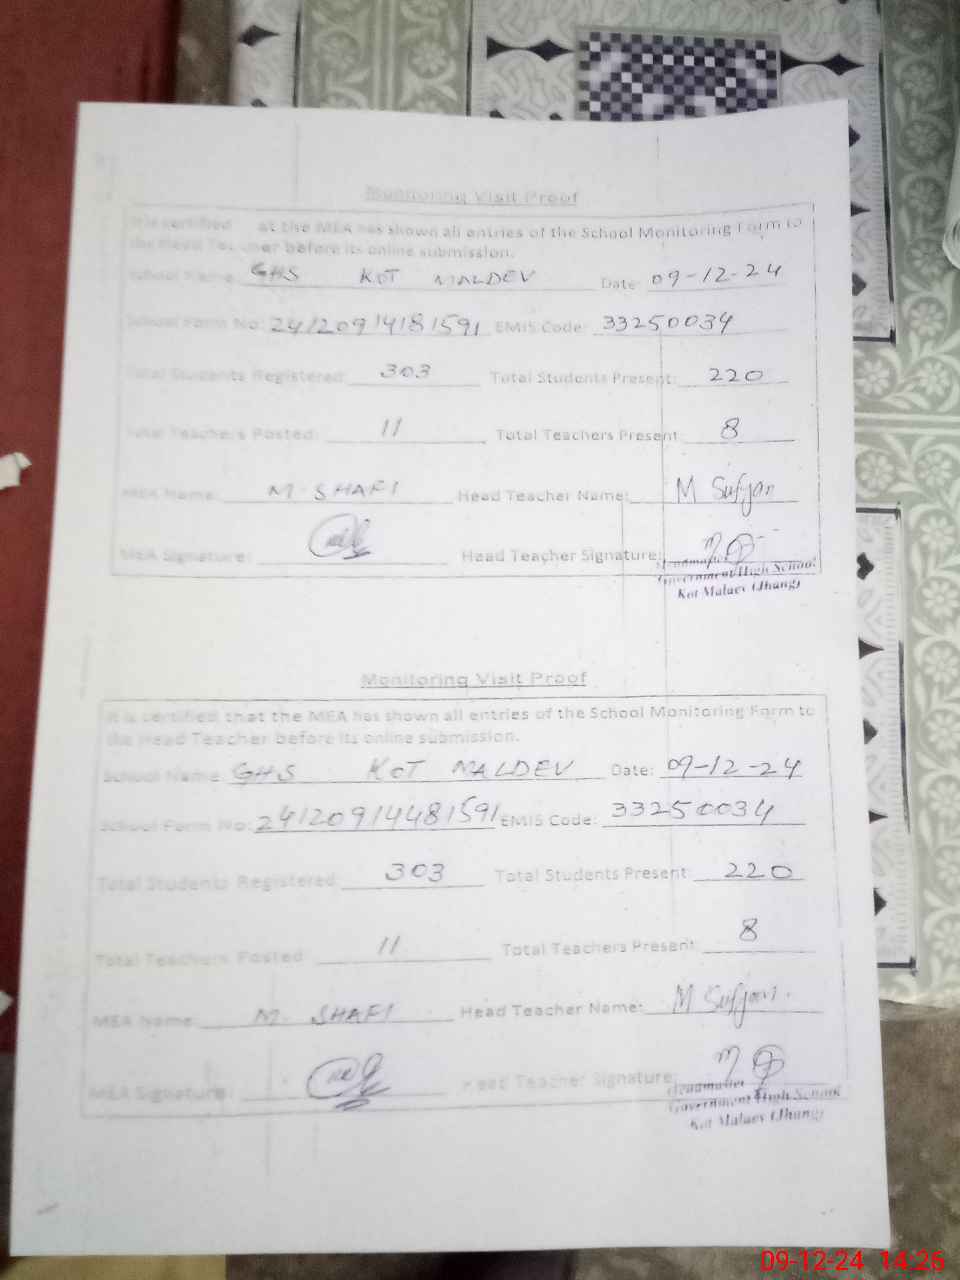 Monitoring Visit Proof
It is certified at the MEA has shown all entries of the School Monitoring Form to
the Head Teacher before its online submission.
School Name GHS KOT MALDEV Date: 09-12-24
School Form No: 24120914181591 EMIS Code: 33250034
Total Students Registered: 303 Total Students Present: 220
Total Teachers Posted: 11 Total Teachers Present 8
MEA Name: M. SHAFI Head Teacher Name: M Sufyan
MEA Signature: Head Teacher Signature:
Headmaster
Government High School
Kot Maldev (Jhang)
Monitoring Visit Proof
It is certified that the MEA has shown all entries of the School Monitoring Form to
the Head Teacher before its online submission.
School Name GHS KOT MALDEV Date: 09-12-24
School Form No: 24120914481591 EMIS Code: 33250034
Total Students Registered 303 Total Students Present: 220
Total Teachers Posted 11 Total Teachers Present: 8
MEA Name: M. SHAFI Head Teacher Name: M Sufyan.
MEA Signature: Head Teacher Signature:
Headmaster
Government High School
Kot Maldev (Jhang)
09-12-24 14:26